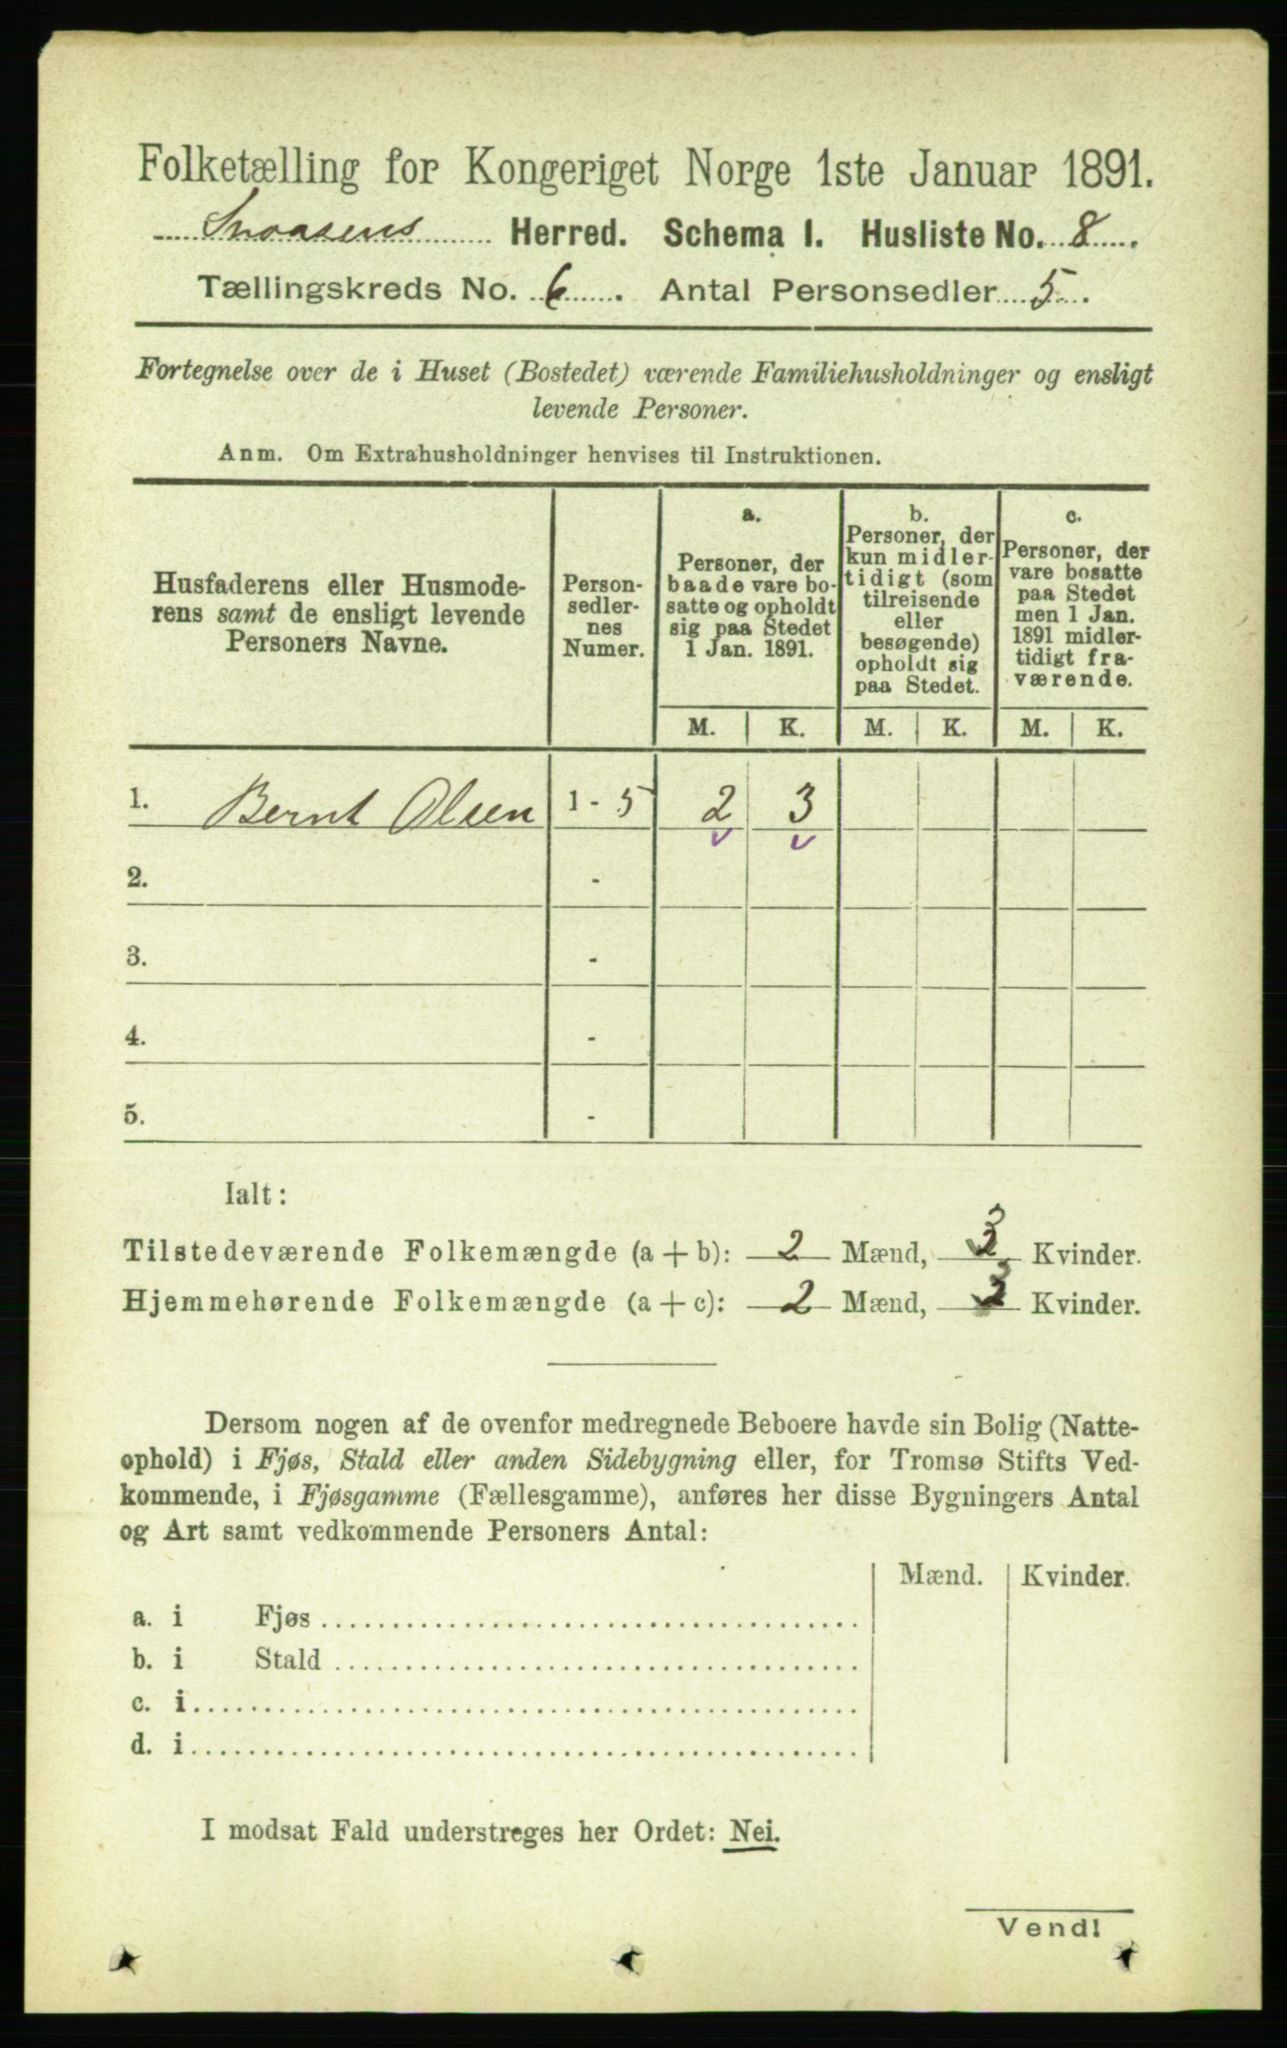 Folketælling for Kongeriget Norge 1ste Januar 1891.
Snaasens Herred. Schema I. Husliste No. 8.
Tællingskreds No. 6. Antal Personsedler 5.
Fortegnelse over de i Huset (Bostedet) værende Familiehusholdninger og ensligt
levende Personer.
Anm. Om Extrahusholdninger henvises til Instruktionen.
Husfaderens eller Husmode-
rens samt de ensligt levende
Personers Navne.
Person-
sedler-
nes
Numer.
a.
Personer, der
baade vare bo-
satte og opholdt
sig paa Stedet
1 Jan. 1891.
b.
Personer, der
kun midler-
tidigt (som
tilreisende
eller
besøgende)
opholdt sig
paa Stedet.
c.
Personer, der
vare bosatte
paa Stedet
men 1 Jan.
1891 midler-
tidigt fra-
værende.
M. K. M. K. M. K.
1. Bernt Olsen 1 - 5 2 3
2. -
3. -
4. -
5. -
Ialt:
Tilstedeværende Folkemængde (a + b): 2 Mænd, 3 Kvinder.
Hjemmehørende Folkemængde (a + c): 2 Mænd, 3 Kvinder.
Dersom nogen af de ovenfor medregnede Beboere havde sin Bolig (Natte-
ophold) i Fjøs, Stald eller anden Sidebygning eller, for Tromsø Stifts Ved-
kommende, i Fjøsgamme (Fællesgamme), anføres her disse Bygningers Antal
og Art samt vedkommende Personers Antal:
Mænd. Kvinder.
a. i Fjøs
b. i Stald
c. i
d. i
I modsat Fald understreges her Ordet: Nei.
Vend!